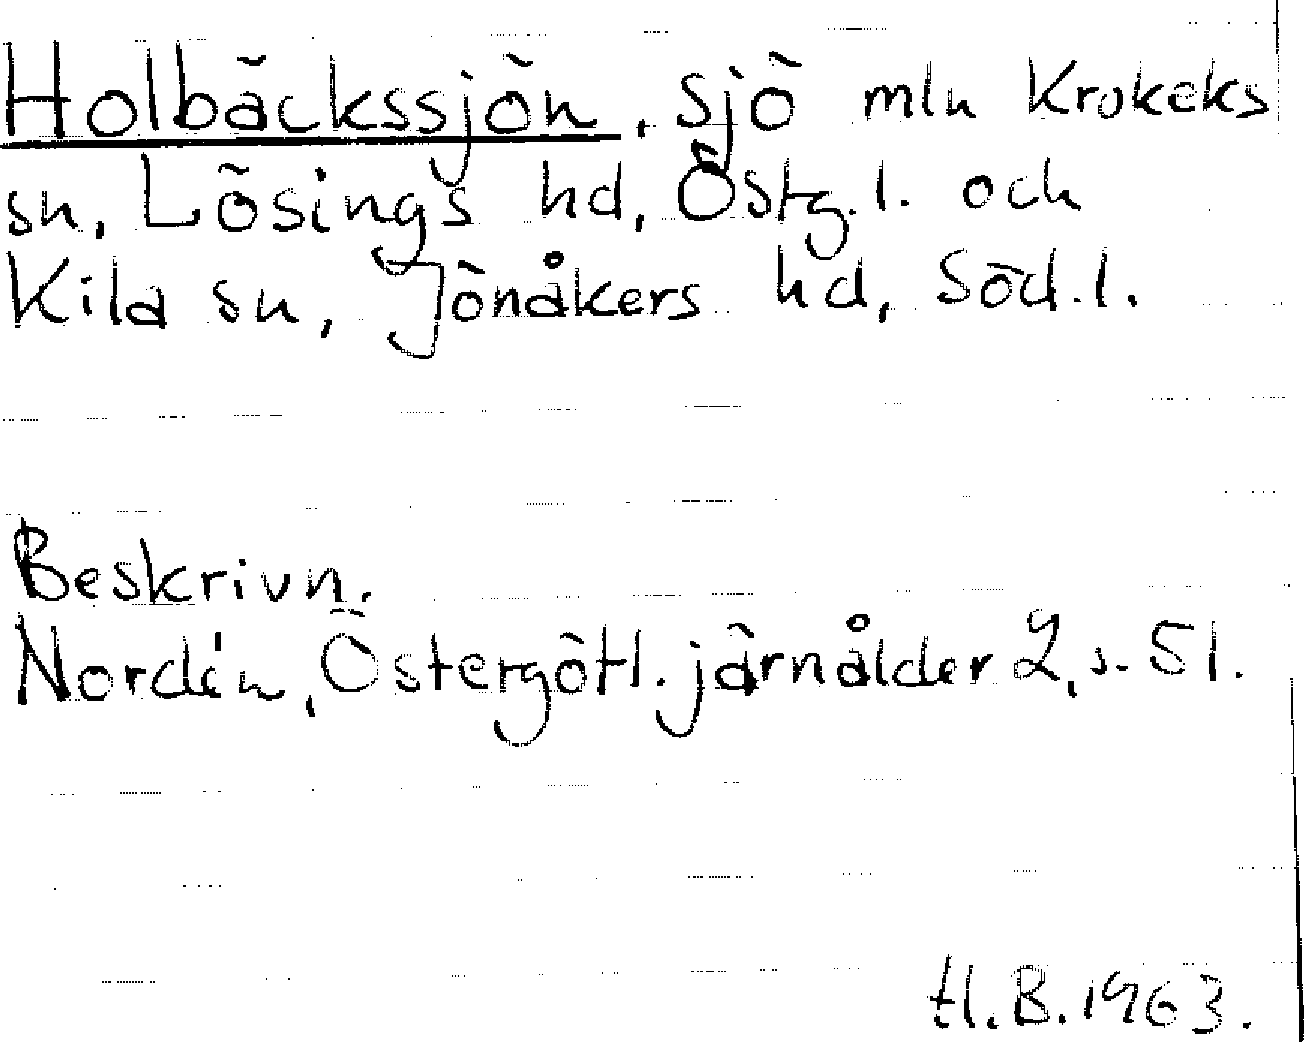 Holbäckssjön, sjö mln Krokeks
sn, Lösings hd, Östg. l. och
Kila sn, Jönåkers hd, Söd. l.
Beskrivn.
Nordén, Östergötl. järnålder 2, s. 51.
H.B. 1963.